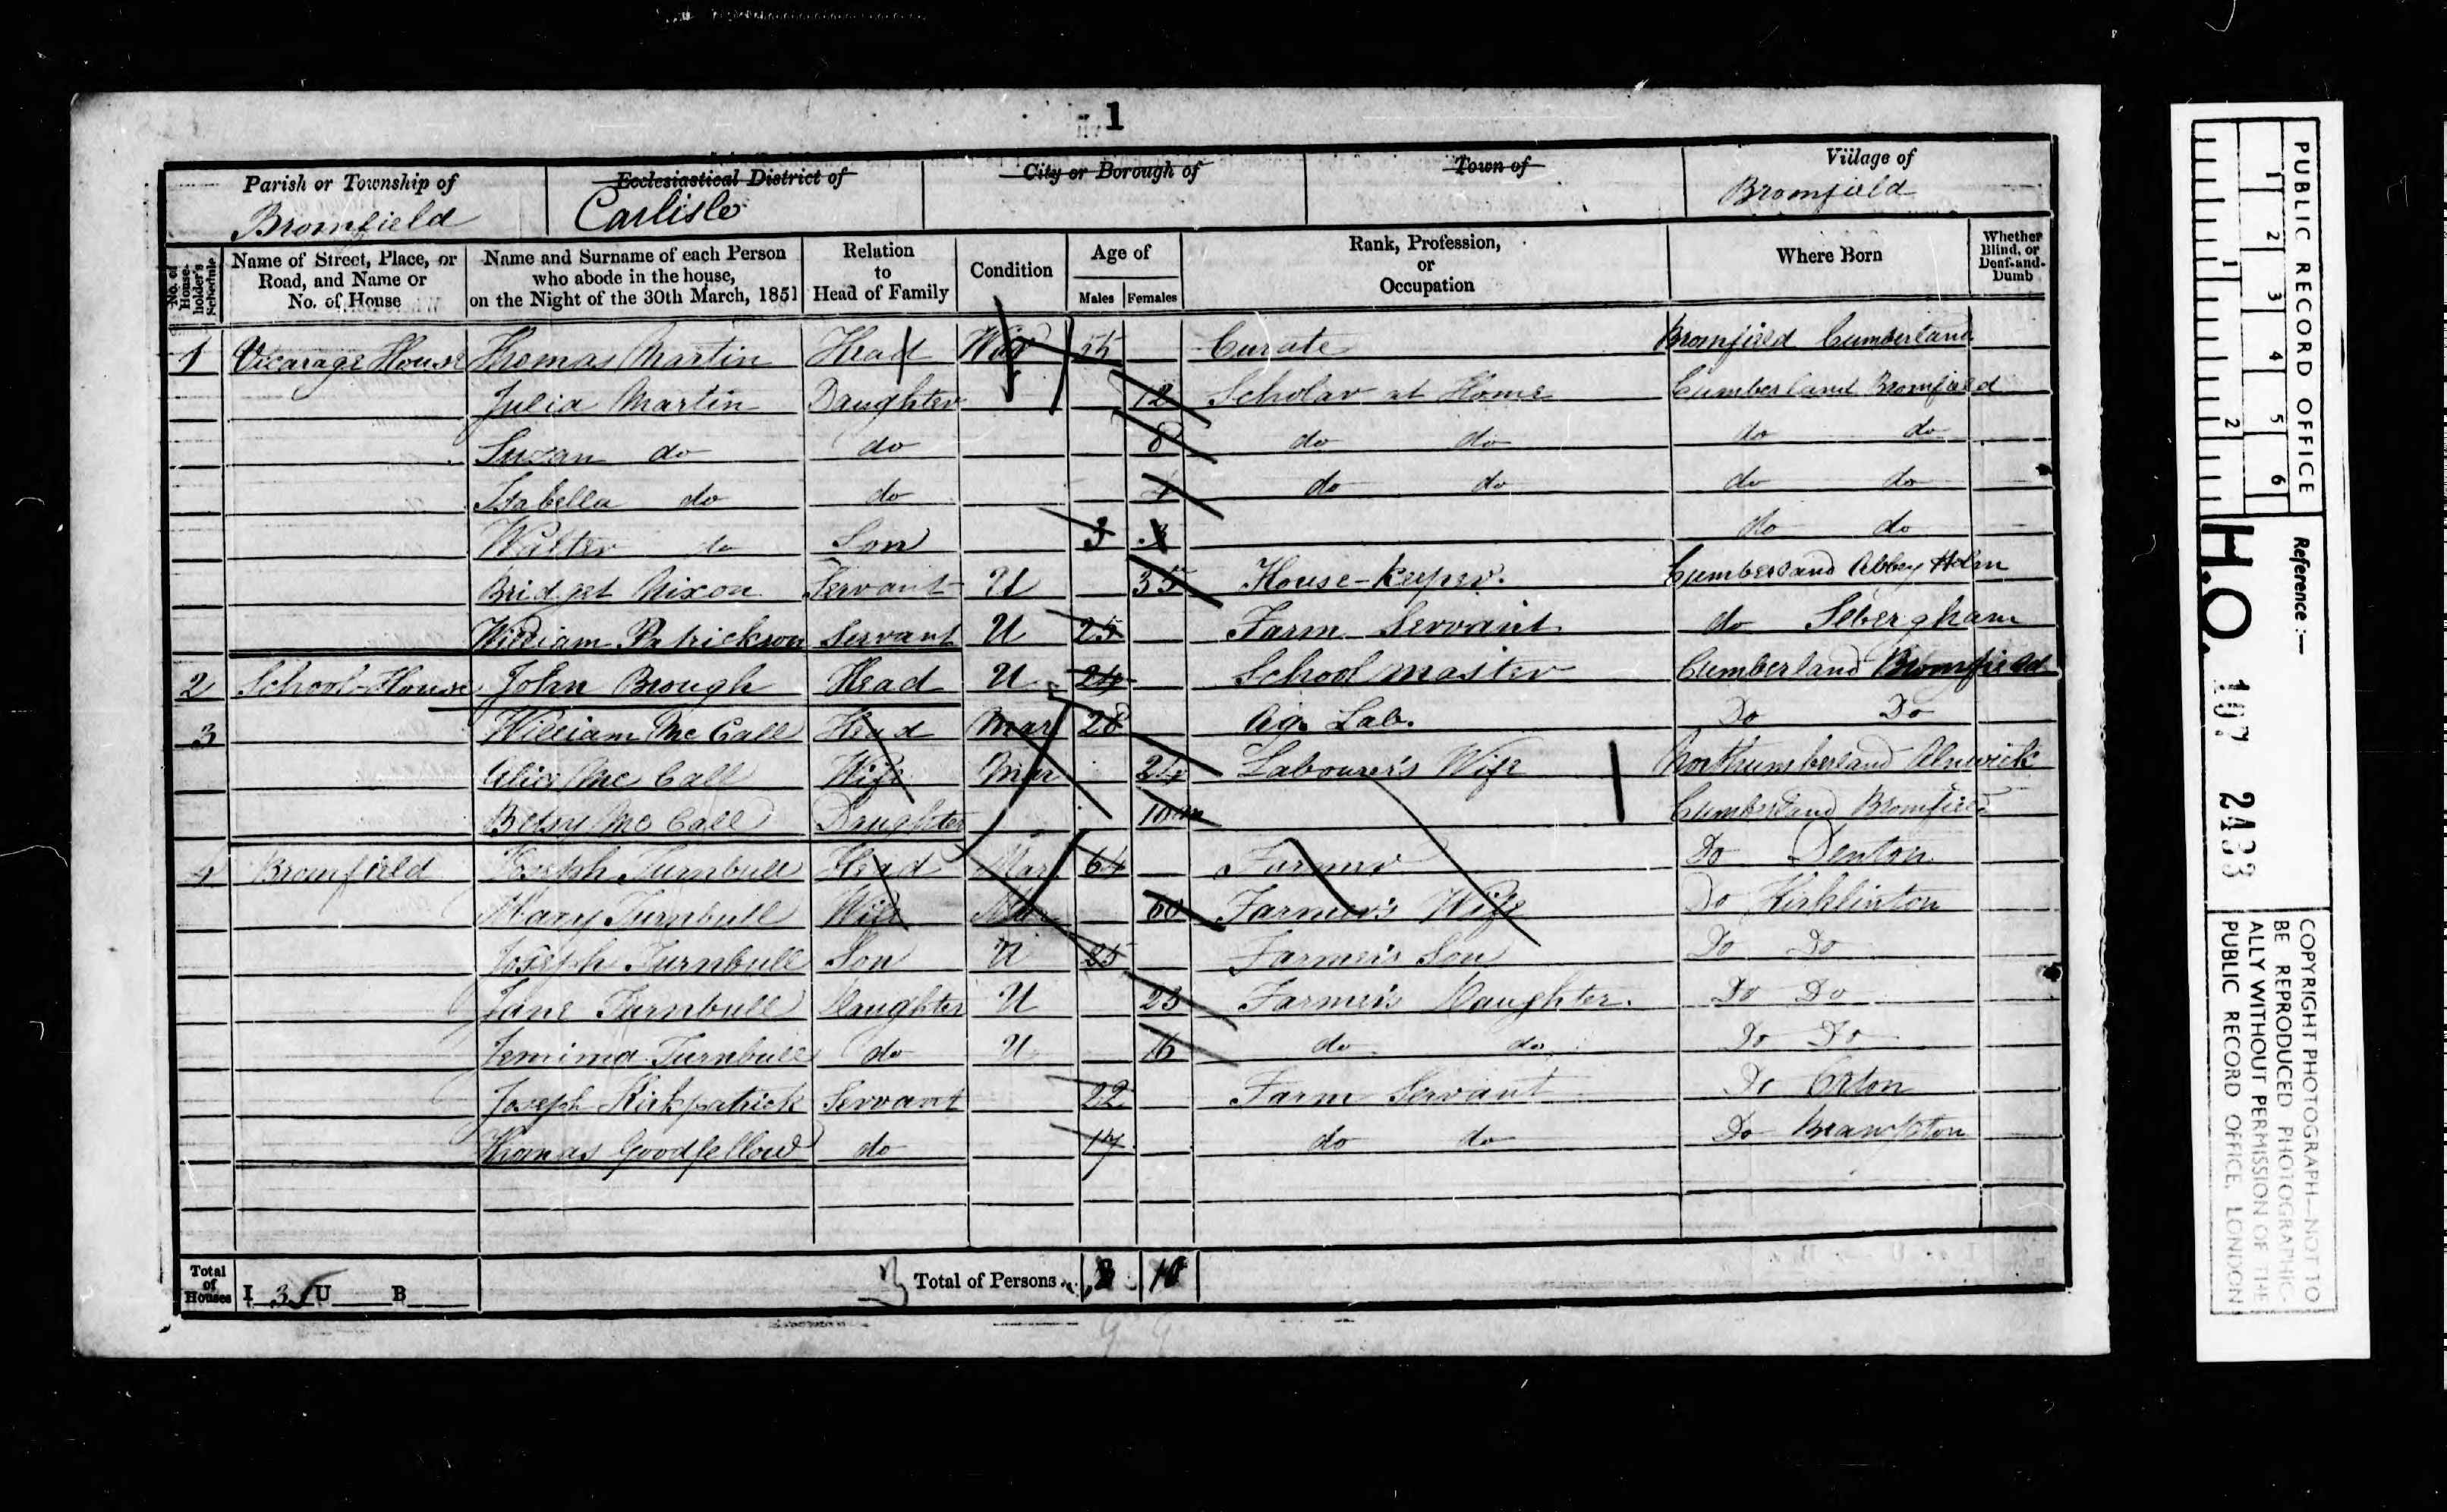 1
Parish or Township of Ecclesiastical District of City or Borough of Town of Village of
Bromfield Carlisle Bromfield
No. of House-holder's Schedule Name of Street, Place, or Road, and Name or No. of House Name and Surname of each Person who abode in the house, on the Night of the 30th March, 1851 Relation to Head of Family Condition Age of Males Females Rank, Profession, or Occupation Where Born Whether Blind, or Deaf-and-Dumb
1 Vicarage House Thomas Martin Head Wid 55 Curate Bromfield Cumberland
Julia Martin Daughter 12 Scholar at Home Cumberland Bromfield
Suzan do do 8 do do do do
Isabella do do 4 do do do do
Walter do Son 3 do do
Bridget Nixon Servant U 35 House-keeper. Cumberland Abbey Holm
William Patrickson Servant U 25 Farm Servant do Sebergham
2 School-House John Brough Head U 24 School master Cumberland Bromfield
3 William Mc Call Head Mar 28 Ag. Lab. Do Do
Alice Mc Call Wife Mar 24 Labourer's Wife Northumberland Alnwick
Betsy Mc Call Daughter 10 m Cumberland Bromfield
4 Bromfield Joseph Turnbull Head Mar 64 Farmer Do Denton
Mary Turnbull Wife Mar 60 Farmer's Wife Do Kirklinton
Joseph Turnbull Son U 25 Farmer's Son Do Do
Jane Turnbull Daughter U 23 Farmer's Daughter. Do Do
Jemima Turnbull do U 16 do do Do Do
Joseph Kirkpatrick Servant 22 Farm Servant Do Orton
Thomas Goodfellow do 17 do do Do Brampton
Total of Houses I 3 U B Total of Persons 10
9 9
PUBLIC RECORD OFFICE
1 2 3 4 5 6
1 2
Reference :—
H.O. 107 2433
COPYRIGHT PHOTOGRAPH—NOT TO
BE REPRODUCED PHOTOGRAPHIC-
ALLY WITHOUT PERMISSION OF THE
PUBLIC RECORD OFFICE, LONDON